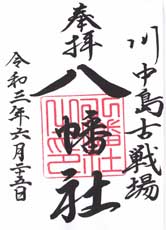 川中島古戦場
奉拝
八幡社
令和三年六月二十五日